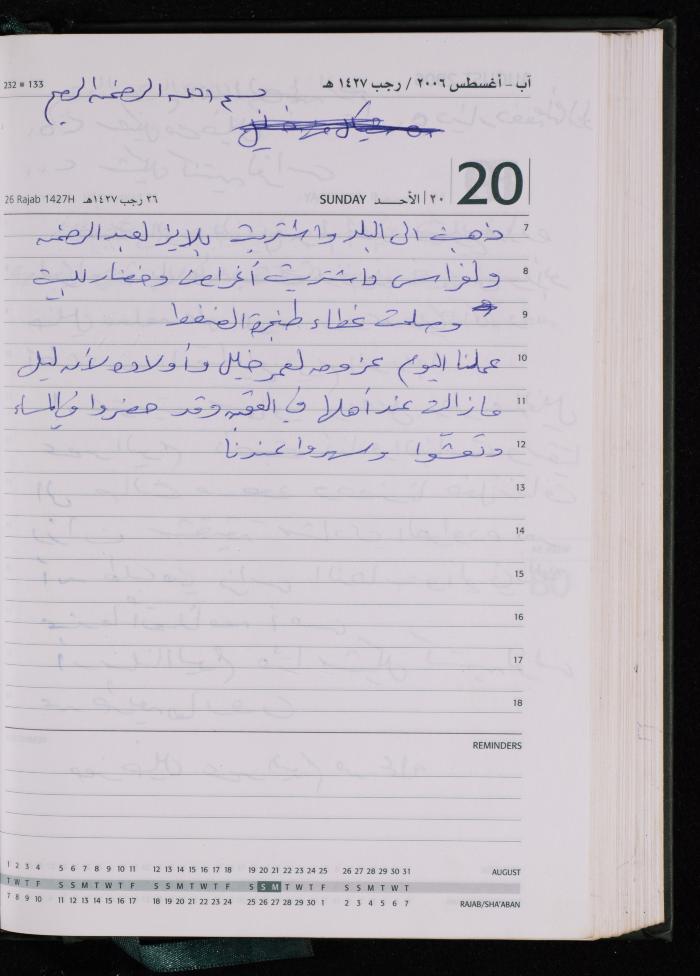 232 ■ 133
آب - أغسطس ٢٠٠٦ / رجب ١٤٢٧ هـ
بسم الله الرحمن الرحيم
26 Rajab 1427H ٢٦ رجب ١٤٢٧هـ SUNDAY الأحـــد ٢٠ 20
7 ذهبت الى البلد واشتريت بلايز لعبد الرحمن
8 ولفراس واشتريت أغراض وخضار للبيت
9 وصلحت غطاء طنجرة الضغط
10 عملنا اليوم عزومه لعمر خليل وأولاده لأن ليل
11 مازالت عند أهلها في العقبه وقد حضروا في المساء
12 وتعشوا وسهروا عندنا
13
14
15
16
17
18
REMINDERS
1 2 3 4 5 6 7 8 9 10 11 12 13 14 15 16 17 18 19 20 21 22 23 24 25 26 27 28 29 30 31 AUGUST
T W T F S S M T W T F S S M T W T F S S M T W T F S S M T W T
7 8 9 10 11 12 13 14 15 16 17 18 19 20 21 22 23 24 25 26 27 28 29 30 1 2 3 4 5 6 7 RAJAB/SHA'ABAN